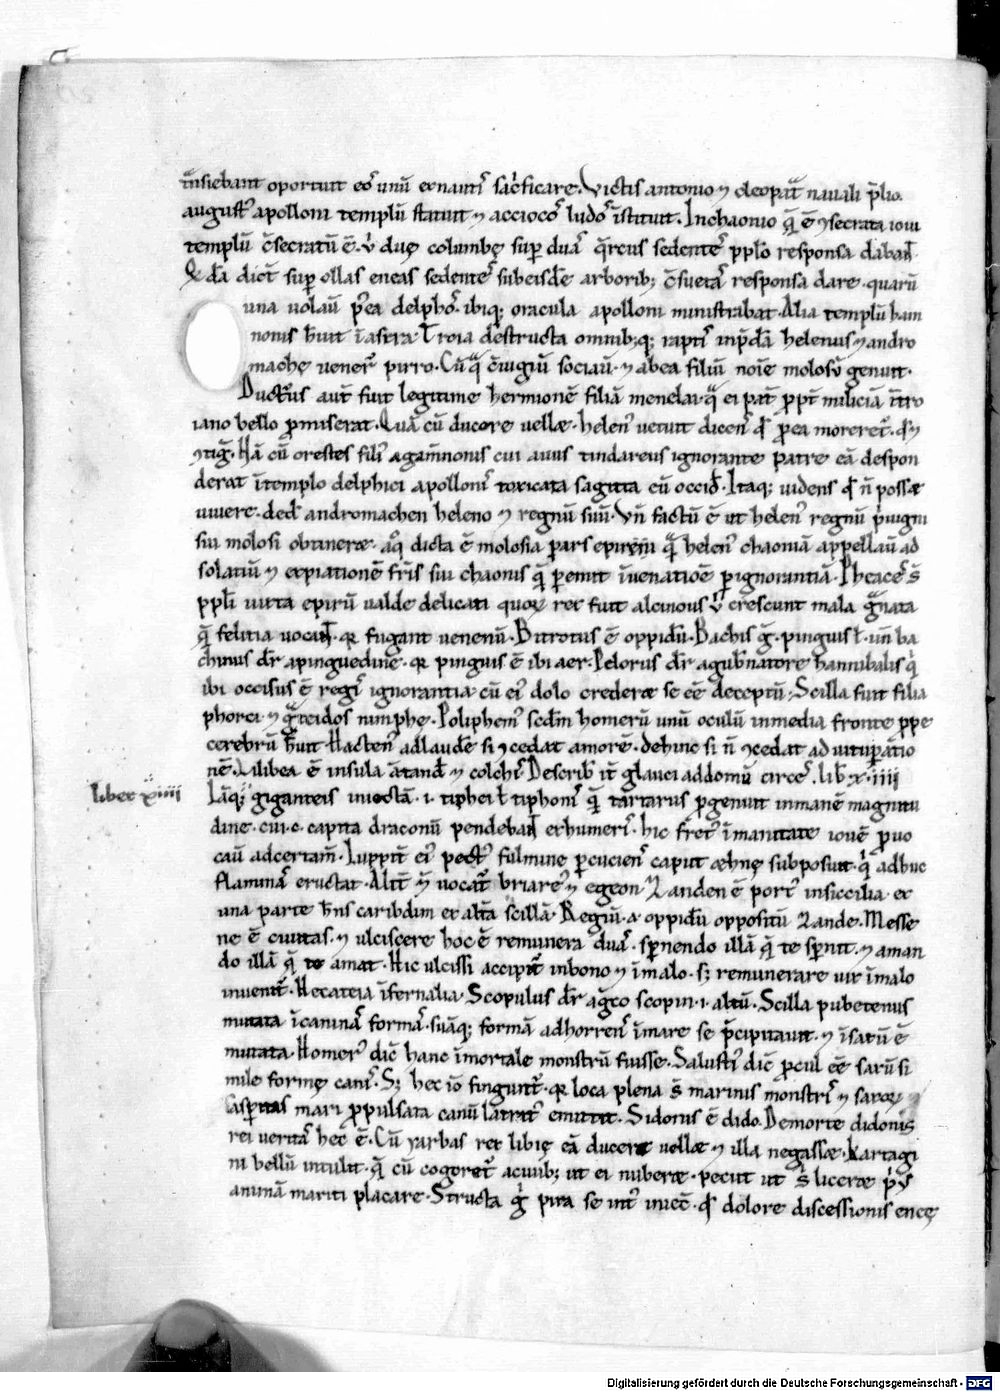 tn̄siebant oportuit eoꝰ unū ex nautiꝭ sac̄ficare. Victis antonio ⁊ cleopat̄ nauali p̄lio.
augustꝰ apolloni templū statuit ⁊ acciocoꝭ ludoꝭ īstituit. In chaonio q̄ ē ꝯsecrata ioui
templū ꝯsecratū ē. u᷑ duę columbę suꝑ duaꝭ q̄rcus sedenteꝭ ppl̄o responsa dabant
⁊ d̄a dic̄t suꝑ ollas eneas sedenteꝭ subeisdē arborib; ꝯsuetaꝭ responsa dare. quarū
una uolauī p̄ea delphoꝭ. ibiq; oracula apolloni ministrabat. Alia templū ham
nonis h̄uit ī astra. Troia destructa omnib;q; raptiꝭ inp̄dā helenus ⁊ andro
machę uenerꝭ pirro. Cū q̄ ꝯiugiū sociauī. ⁊ ab ea filiū noīe molosū genuit.
Ductꝰus aut̄ fuit legitime hermionē filiā menelai. q̄ ei pat̄ ꝓpt̄ miliciā ī tro
iano bello ꝓmiserat. Quā cū ducere uellæ. helenꝰ uetuit dicenꝭ qđ ꝓ ea moreret᷑. qđ ⁊
ꝯtig̊. Nā cū orestes filiꝰ agam̄nonis cui auus tindareus ignorante patre eā despon
derat ī templo delphici apolloniꝭ toxicata sagitta eū occiđ. Itaq; uidens qđ n̄ possæ
uiuere. dedꝭ andromachen heleno ⁊ regnū suū. Vn̄ factū ē ut helenꝰ regnū p̄uigni
sui molosi obtineræ. a q̊ dicta ē molosia pars epiri q̄ helenꝰ chaoniā appellauī ad
solatiū ⁊ expiationē fr̄is sui chaonis q̄ peremit ī uenatiōe ꝑ ignorantiā. Pheaceꝭ s̄
ppl̄i iuxta epirū ualde delicati quoꝝ rex fuit alcinous u᷑ crescunt mala g̊nata
q̄ felitia uocant᷑. qꝛ fugant uenenū. Bitrotus ē oppidū. Bachis ḡ. pinguis l̄. un̄ ba
chinus dr̄ a pinguedine. qꝛ pinguis ē ibi aer. Pelorus dr̄ a gub̄natore hannibalis q̄
ibi occisus ē regiꝭ ignorantia. cū eiꝰ dolo crederæ se eē deceptū. Scilla fuit filia
phorci. ⁊ q̄teidos nimphe. Poliphemꝰ scd̄m homerū unū oculū in media fronte ꝓpe
cerebrū h̄uit. Hactenꝰ ad laudē si ꝯcedat amorē. dehinc si n̄ ꝯcedat ad uituꝑatio
nē. Lilibea ē insula ātand̄ ⁊ colchiꝭ. Describꝭ it̄ glauci ad domū circeꝭ. lib̄. x.iiii
liber xiiii
Iāq; giganteis iniectā. i. tiphei ł tiphoniꝭ q̄ tartarus ꝓgenuit inmanē magnitu
dine. cui .c. capita draconū pendebant ex humeriꝭ. hic fretꝰ īmanitate iouē ꝓuo
cauī ad certam̄. Iuppit̄ eiꝰ pectꝰ fulmine ꝑcucienꝭ caput æthnę subposuit. q̄ adhuc
flammaꝭ eructat. Alit̄ ⁊ uocat᷑ briareꝰ ⁊ egeon. Zanden ē portꝰ in siccilia. ex
una parte h̄ns caribdim ex altā scillā. Regiū. a. oppidū oppositū zande. Messe
ne ē ciuitas. ⁊ ulciscere hoc ē remunera duaꝭ. sꝑnendo illā q̄ te sꝑnit. ⁊ aman
do illā q̄ te amat. Hic ulcissi accipit᷑ in bono ⁊ ī malo. s; remunerare uix ī malo
inuenit᷑. Hecateia īfernalia. Scopulus dr̄ a g̊co scopin. i. altū. Scilla pube tenus
mutata ī caninaꝭ formaꝭ. suāq; formā adhorrenꝭ ī mare se p̄cipitauit. ⁊ ī saxū ē
mutata. Homerꝰ dic̄ hanc īmortale monstrū fuisse. Salustiꝰ dic̄ ꝓcul eē saxū si
mile formę caniꝭ. S; hec iō fingunt᷑. qꝛ loca plena s̄ marinis monstriꝭ ⁊ saxoꝝ
asꝑitas mari ꝓpulsata canū latratꝰ emittit. Sidonis ē dido. De morte didonis
rei ueritaꝭ hec ē. Cū yarbas rex libię eā ducere uellæ ⁊ illa negassæ. Kartagi
ni bellū intulit. q̄ cū cogeret᷑ a ciuib; ut ei nuberæ. peciit ut s̄ liceræ p̄⁊
animā mariti placare. Structa ḡ pira se int̄ iniec̄. qđ dolore discessionis enęę